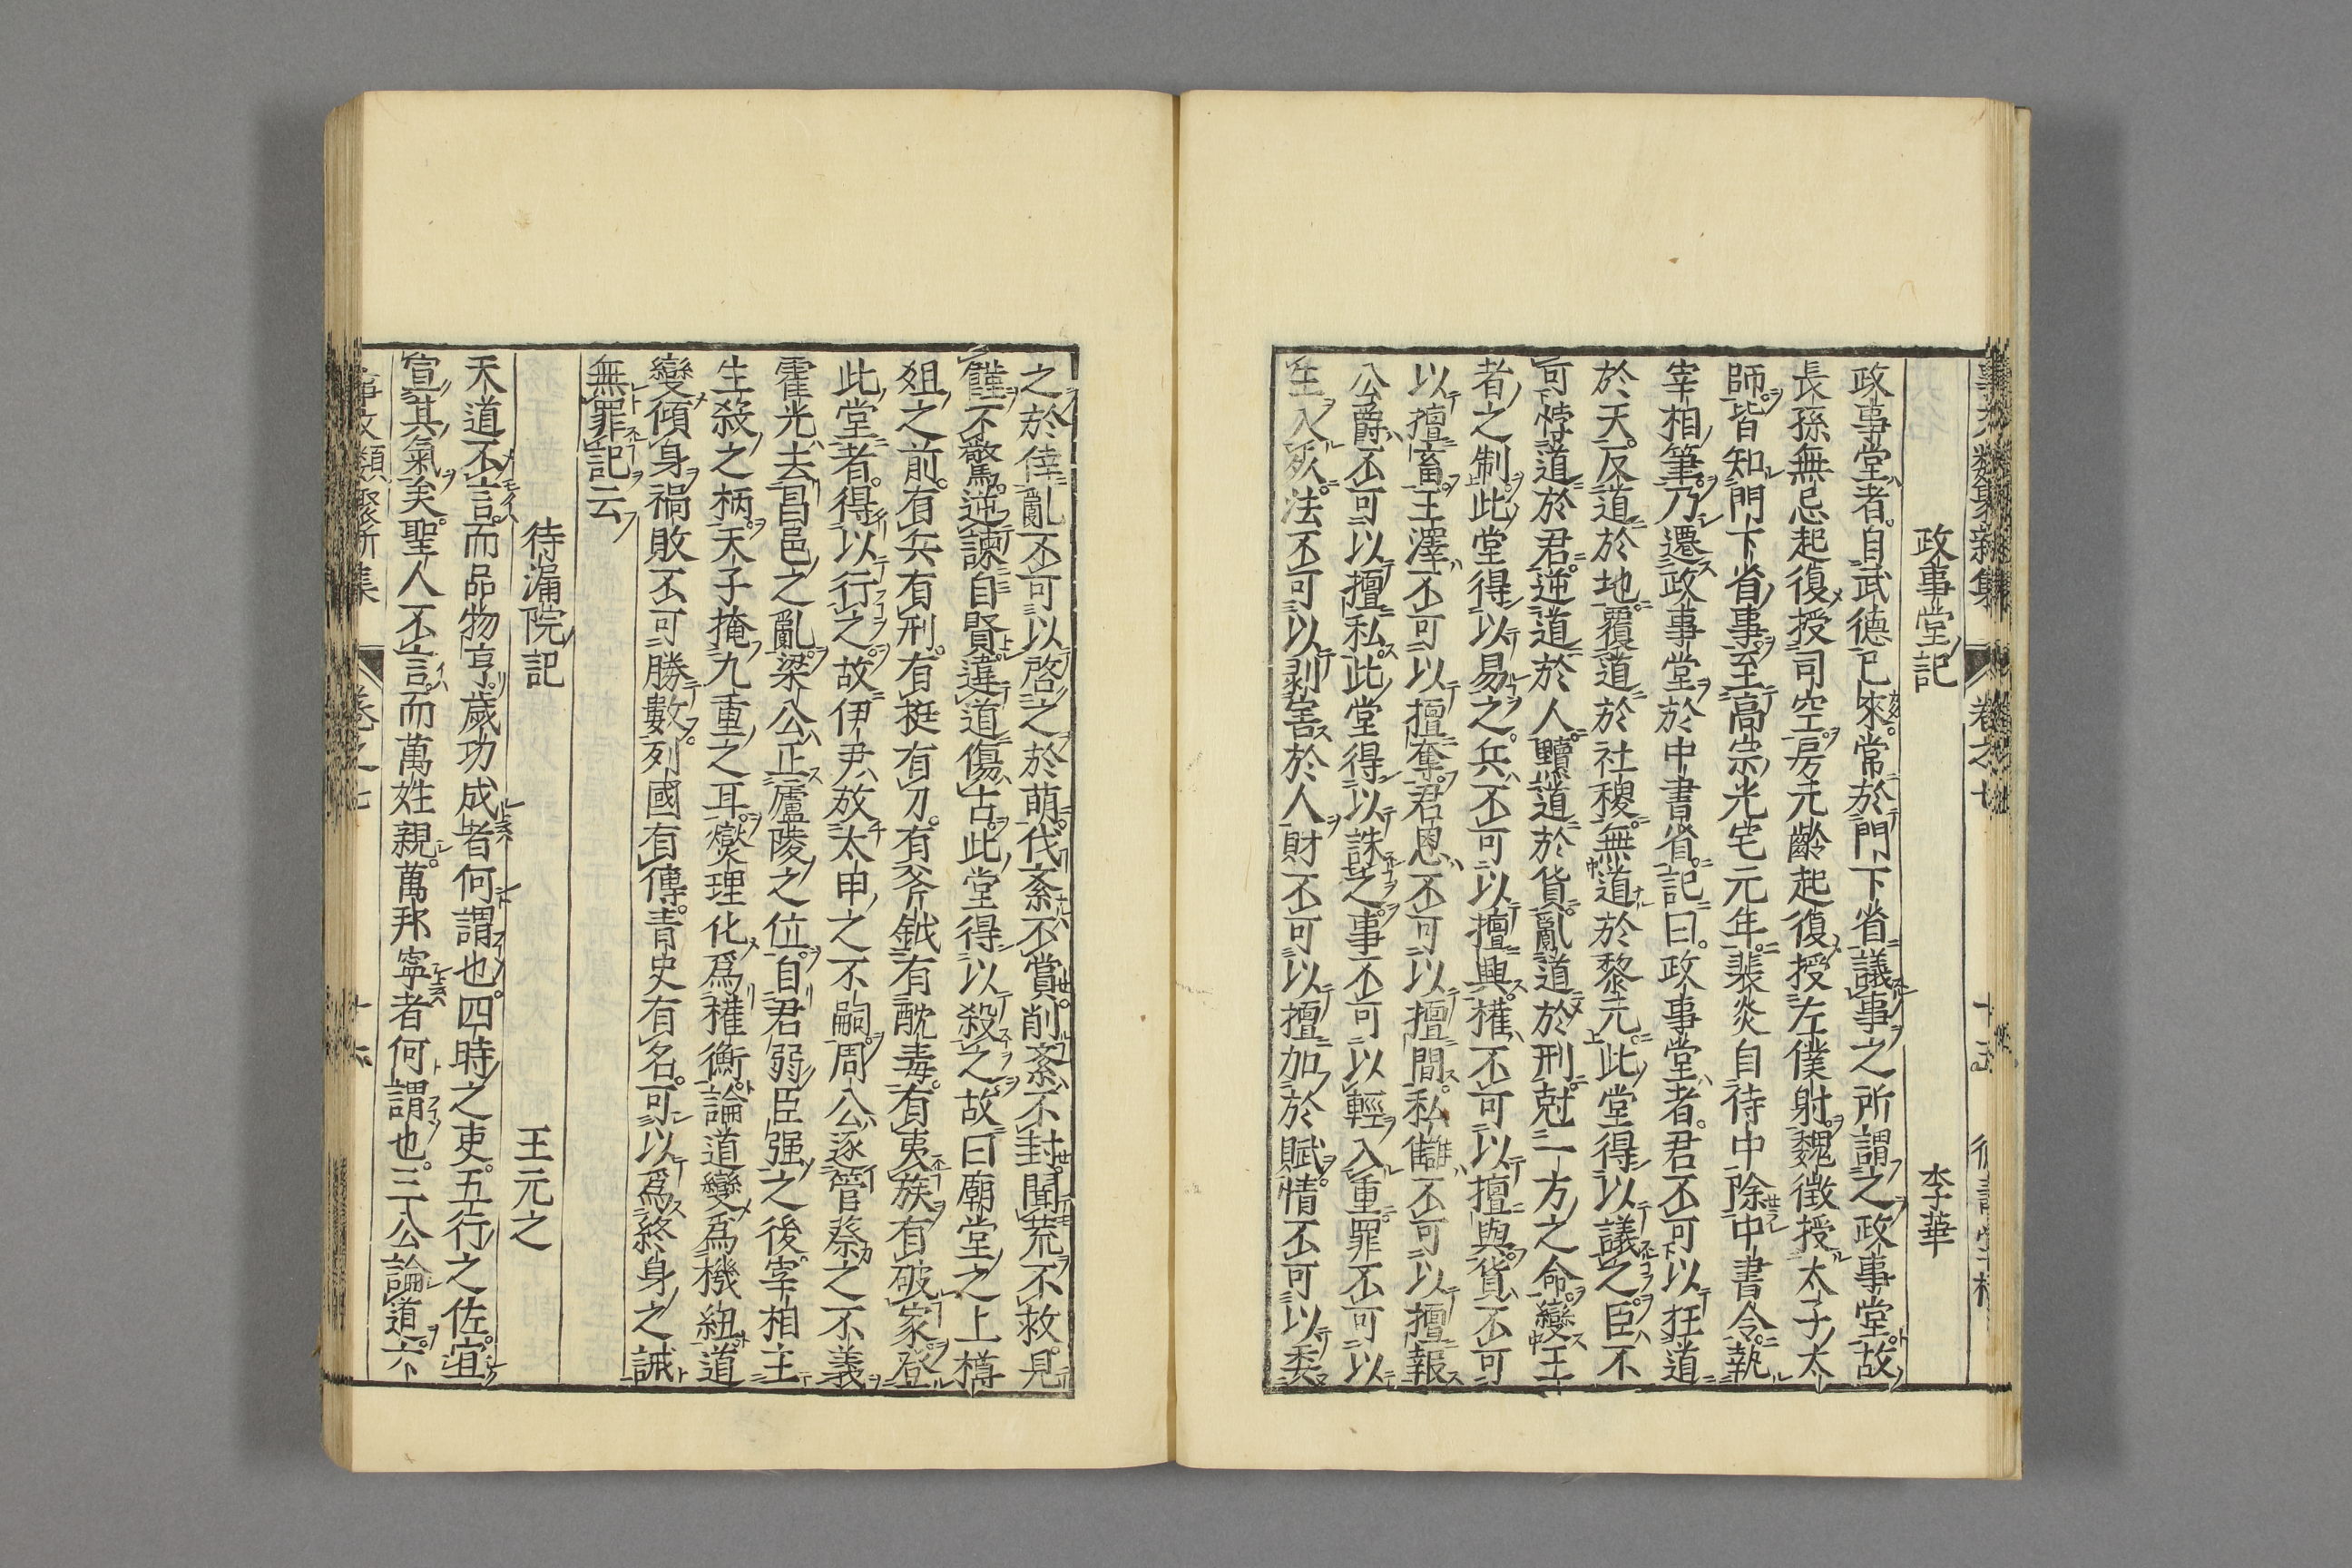 政事堂記　李華
政事堂者。自武德已來。常於門下省議事之所謂之政事堂。故
長孫無忌起復授司空。房元齡起復授左僕射。魏徵授太子太
師。皆知門下省事。至高宗光宅元年。裴炎自侍中除中書令。執
宰相筆。乃遷政事堂於中書省。記曰。政事堂者。君不可以枉道
於天。反道於地。覆道於社稷。無道於黎元。此堂得以議之。臣不
可悖道於君。逆道於人。黷道於貨。亂道於刑。尅一方之命。變王
者之制。此堂得以易之。兵不可以擅興。權不可以擅與。貨不可
以擅畜。王澤不可以擅奪。君恩不可以擅間。私讎不可以擅報。
公爵不可以擅私。此堂得以誅之。事不可以輕入重。罪不可以
生入死。法不可以剥害於人。財不可以擅加於賦。情不可以委
之於倖。亂不可以啓之於萌。伐紊不賞。削紊不封。聞荒不救。見
饉不驚。逆諫自賢。違道傷古。此堂得以殺之。故曰廟堂之上樽
俎之前。有兵有刑。有梃有刀。有斧鉞有酖毒。有夷族有破家。登
此堂者。得以行之。故伊尹放太甲之不嗣。周公逐管蔡之不義。
霍光去昌邑之亂。梁公正廬陵之位。自君弱臣强之後。宰相主
生殺之柄。天子掩九重之耳。燮理化爲權衡。論道變爲機紐。道
變傾身禍敗不可勝數。列國有傳。青史有名。可以爲終身之誡
無罪記云
待漏院記　王元之
天道不言。而品物亨。歲功成者何謂也。四時之吏。五行之佐。宣
宣其氣矣。聖人不言。而萬姓親。萬邦寧者何謂也。三公論道。六
事文類聚新集　卷之七　十六